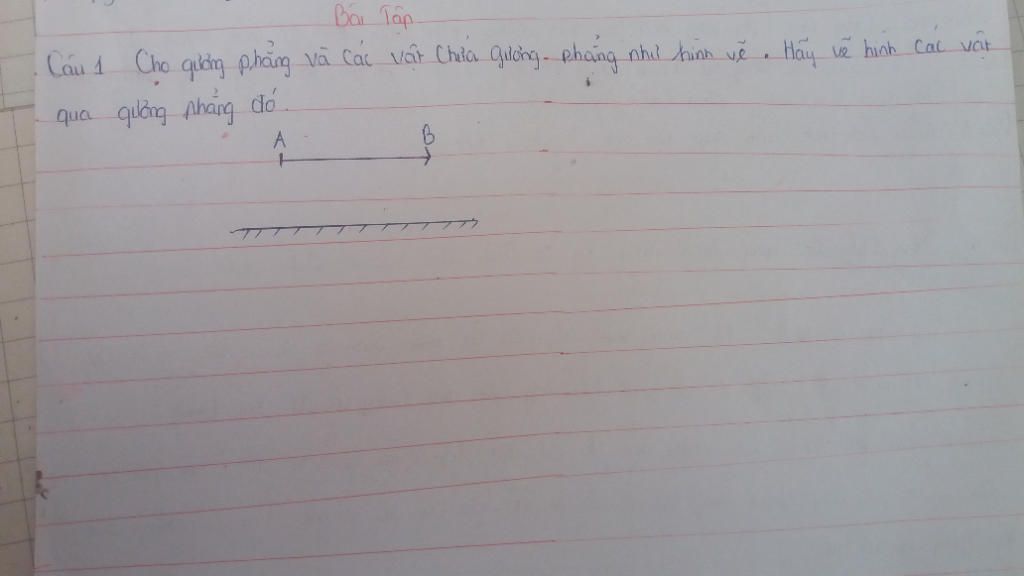 Bài Tập
Câu 1 Cho gương phẳng và các vật chứa gương phẳng như hình vẽ. Hãy vẽ hình các vật
qua gương phẳng đó.
A B